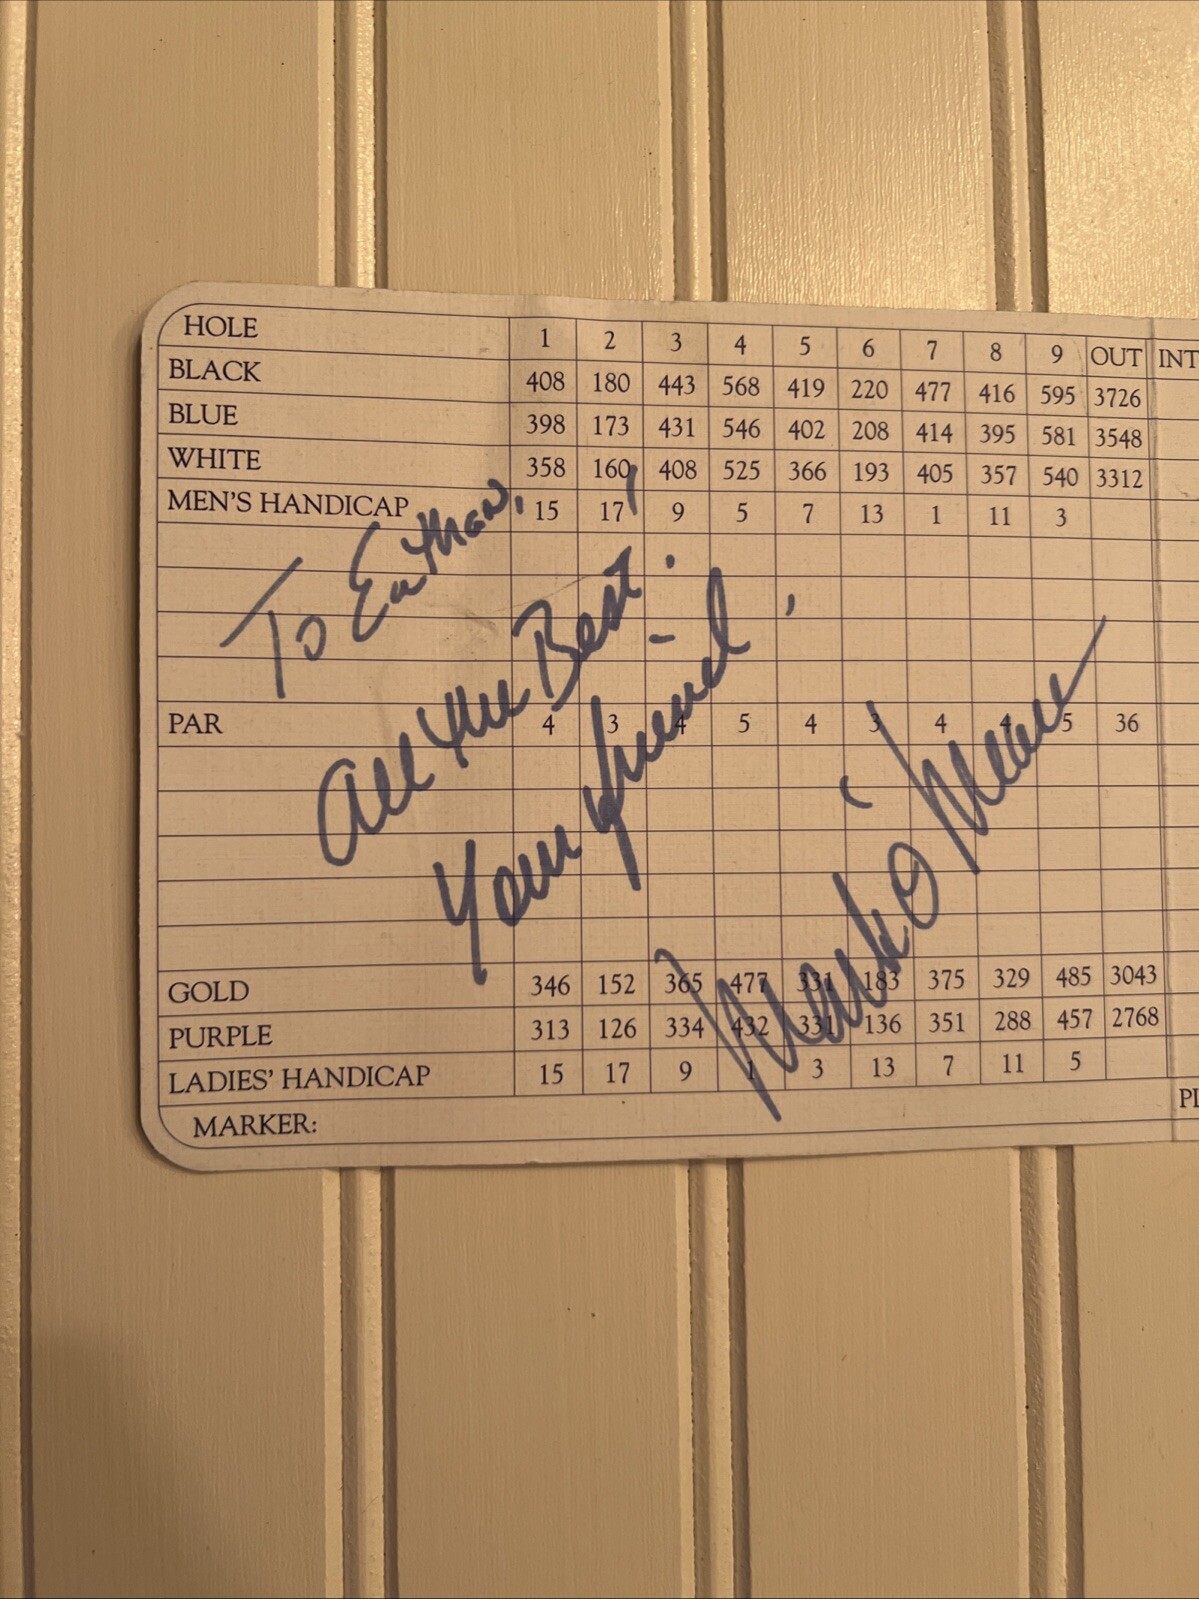 HOLE 1 2 3 4 5 6 7 8 9 OUT INT
BLACK 408 180 443 568 419 220 477 416 595 3726
BLUE 398 173 431 546 402 208 414 395 581 3548
WHITE 358 160 408 525 366 193 405 357 540 3312
MEN'S HANDICAP 15 17 9 5 7 13 1 11 3
To Eathan,
All the Best!
Your friend,
Mark O'Meara
PAR 4 3 4 5 4 3 4 4 5 36
GOLD 346 152 365 477 331 183 375 329 485 3043
PURPLE 313 126 334 432 331 136 351 288 457 2768
LADIES' HANDICAP 15 17 9 1 3 13 7 11 5
MARKER: Pl